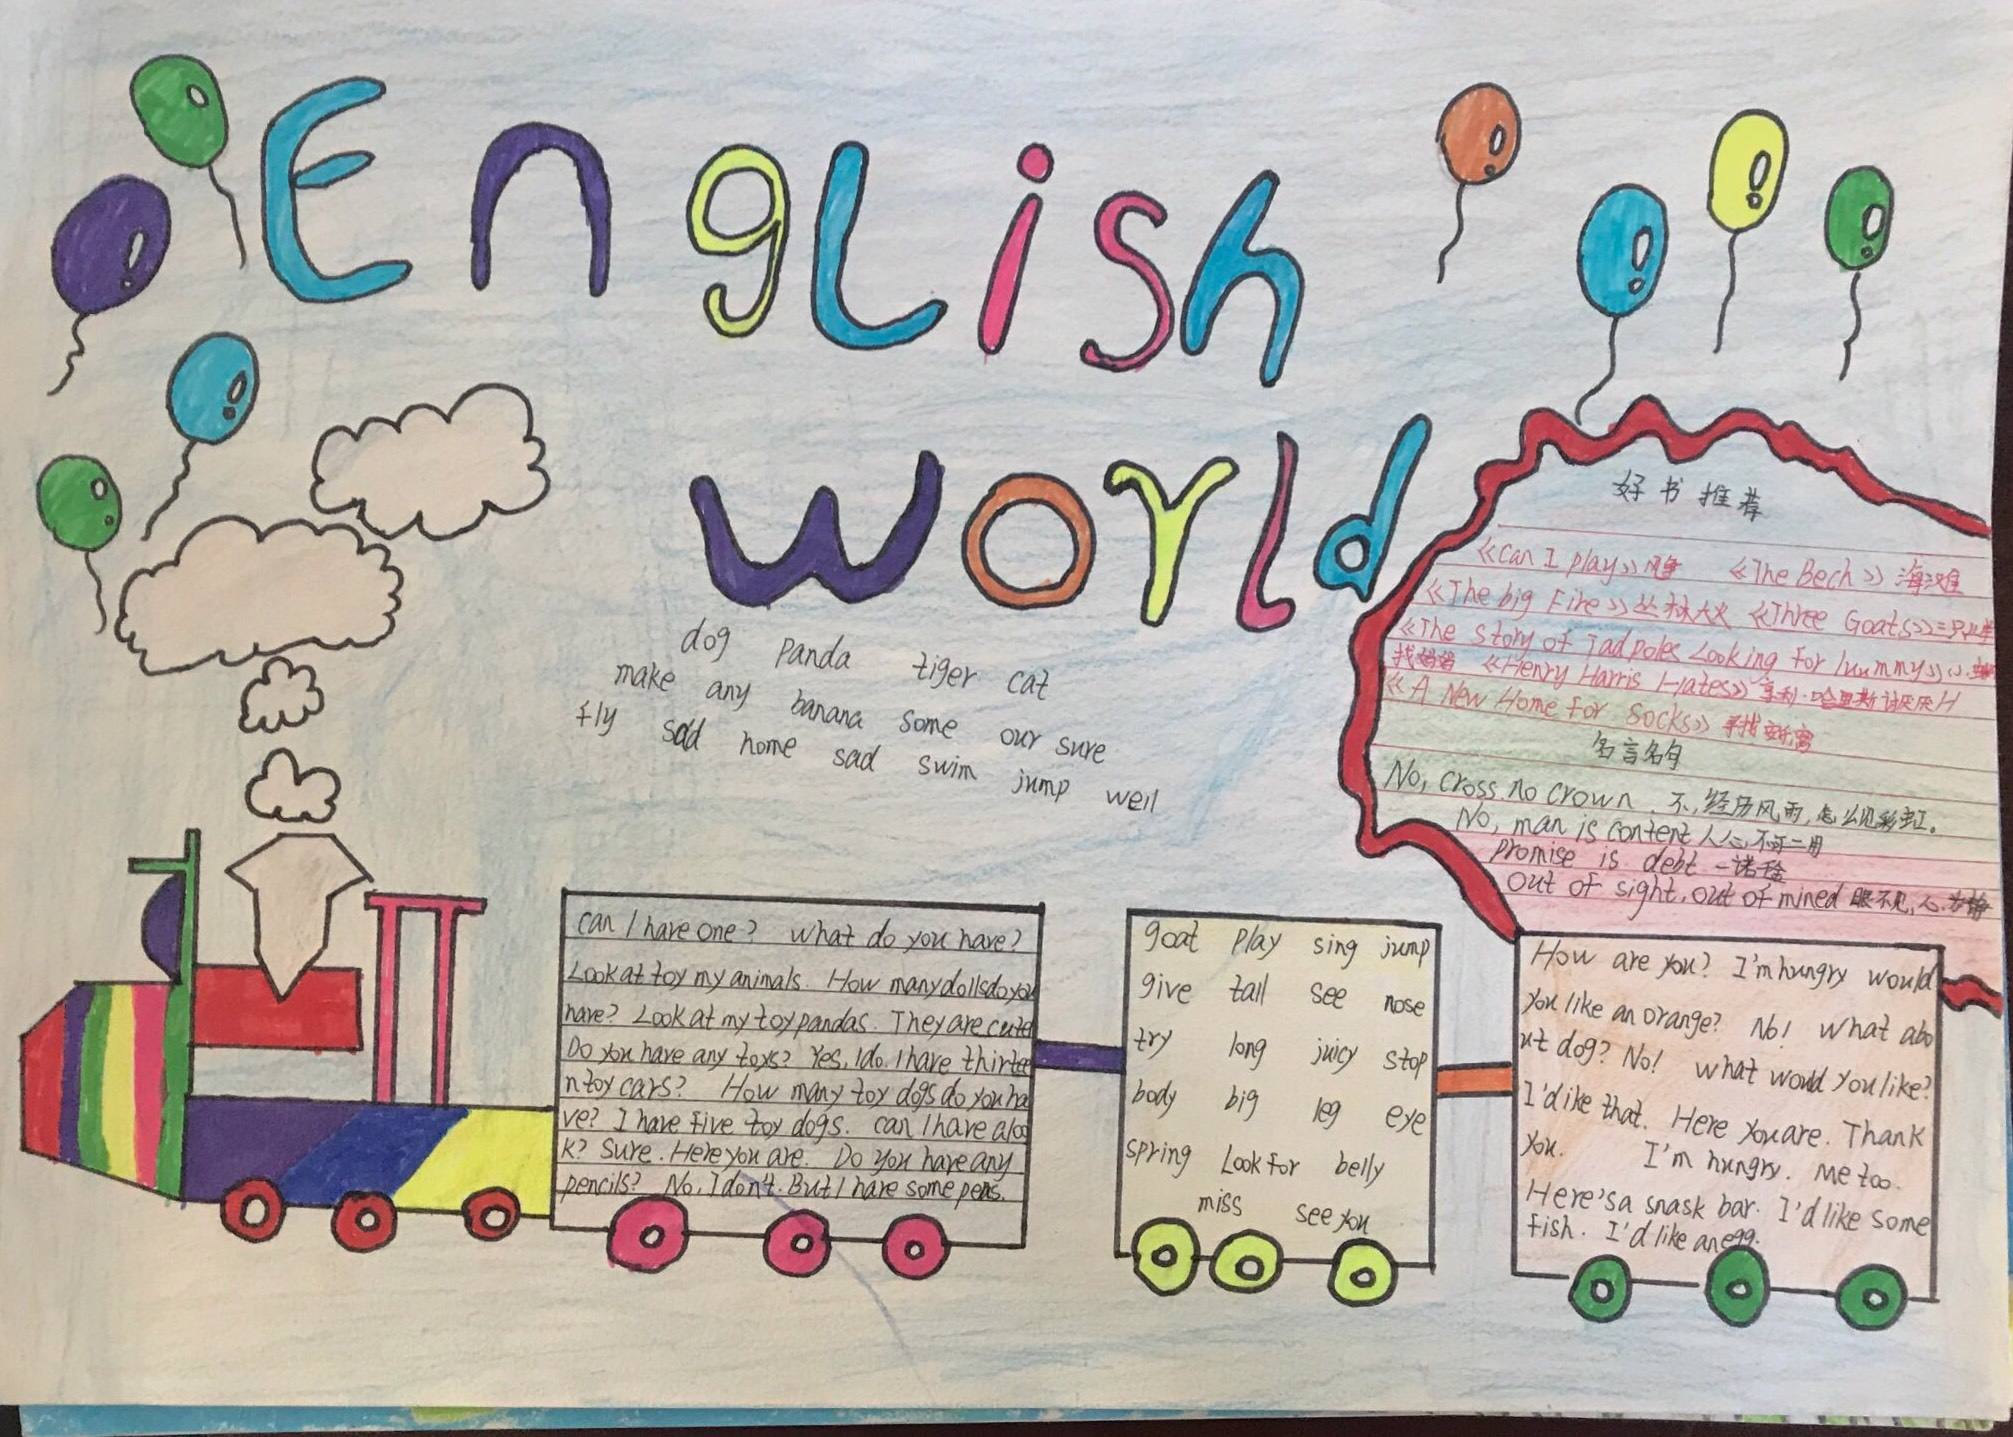 English
World
dog panda tiger cat
make any banana some our sure
fly sad home sad swim jump well
好书推荐
《Can I play》 《The Bech》海滩
《The big Fire》丛林大火 《Three Goats》三只山羊
《The story of Tadpoles Looking for Mummy》小
找妈妈 《Henry Harris Hates》亨利·哈里斯讨厌H
《A New Home for Socks》寻找新窝
名言名句
No, cross. no crown. 不,经历风雨,怎么见彩虹。
No, man is content 人心不可一用
promise is debt 一诺
out of sight, out of mined 眼不见,心为静
can I have one? what do you have?
Look at toy my animals. How many dolls do you
have? Look at my toy pandas. They are cute
Do you have any toys? Yes, I do. I have thirtee
n toy cars? How many toy dogs do you ha
ve? I have five toy dogs. can I have a loo
k? Sure. Here you are. Do you have any
pencils? No, I don't. But I have some pens.
goat play sing jump
give tall see nose
try long juicy stop
body big leg eye
spring Look for belly
miss see you
How are you? I'm hungry would
you like an orange? No! what abo
ut dog? No! what would you like?
I'd ike that. Here you are. Thank
you. I'm hungry. me too.
Here's a snask bar. I'd like some
fish. I'd like an egg.